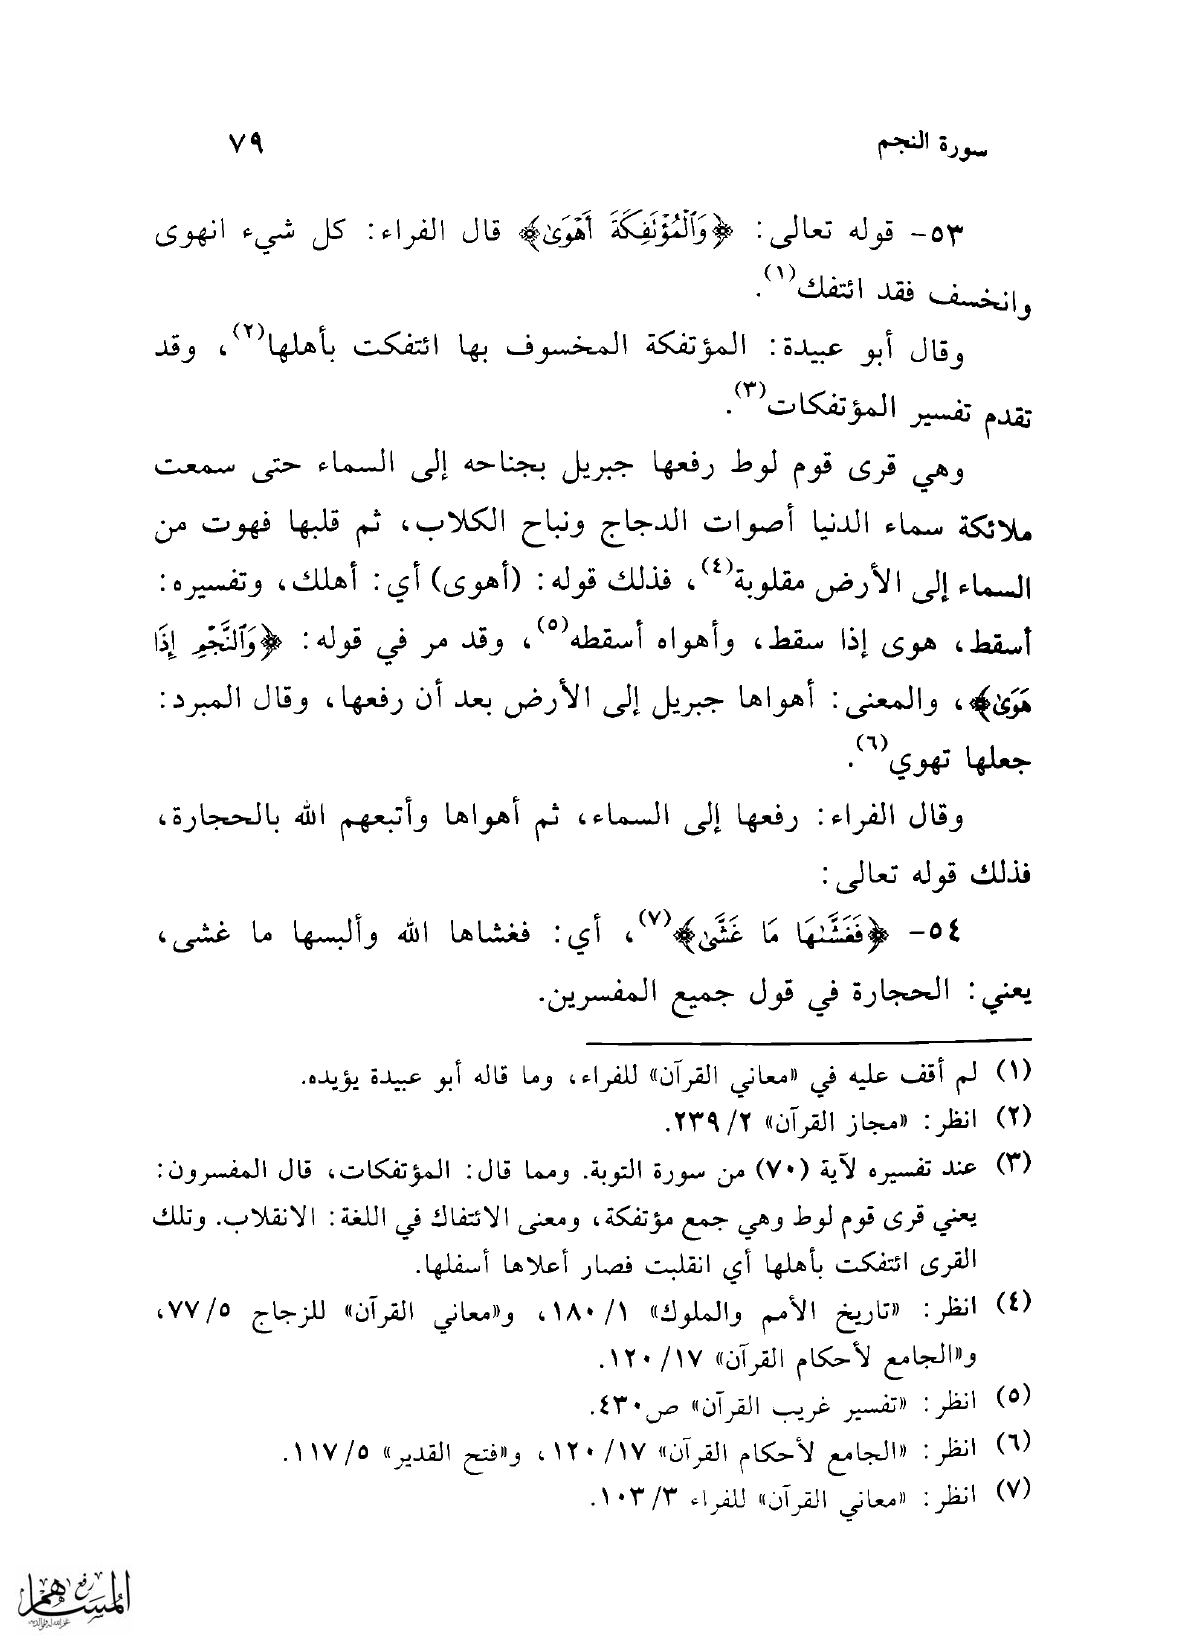 سورة النجم
٧٩
٥٣- قوله تعالى: ﴿وَٱلْمُؤْتَفِكَةَ أَهْوَىٰ﴾ قال الفراء: كل شيء انهوى
وانخسف فقد ائتفك(١).
وقال أبو عبيدة: المؤتفكة المخسوف بها ائتفكت بأهلها(٢)، وقد
تقدم تفسير المؤتفكات(٣).
وهي قرى قوم لوط رفعها جبريل بجناحه إلى السماء حتى سمعت
ملائكة سماء الدنيا أصوات الدجاج ونباح الكلاب، ثم قلبها فهوت من
السماء إلى الأرض مقلوبة(٤)، فذلك قوله: (أهوى) أي: أهلك، وتفسيره:
أسقط، هوى إذا سقط، وأهواه أسقطه(٥)، وقد مر في قوله: ﴿وَٱلنَّجْمِ إِذَا
هَوَىٰ﴾، والمعنى: أهواها جبريل إلى الأرض بعد أن رفعها، وقال المبرد:
جعلها تهوي(٦).
وقال الفراء: رفعها إلى السماء، ثم أهواها وأتبعهم الله بالحجارة،
فذلك قوله تعالى:
٥٤- ﴿فَغَشَّىٰهَا مَا غَشَّىٰ﴾(٧)، أي: فغشاها الله وألبسها ما غشى،
يعني: الحجارة في قول جميع المفسرين.
(١) لم أقف عليه في «معاني القرآن» للفراء، وما قاله أبو عبيدة يؤيده.
(٢) انظر: «مجاز القرآن» ٢/ ٢٣٩.
(٣) عند تفسيره لآية (٧٠) من سورة التوبة. ومما قال: المؤتفكات، قال المفسرون:
يعني قرى قوم لوط وهي جمع مؤتفكة، ومعنى الائتفاك في اللغة: الانقلاب. وتلك
القرى ائتفكت بأهلها أي انقلبت فصار أعلاها أسفلها.
(٤) انظر: «تاريخ الأمم والملوك» ١/ ١٨٠، و«معاني القرآن» للزجاج ٥/ ٧٧،
و«الجامع لأحكام القرآن» ١٧/ ١٢٠.
(٥) انظر: «تفسير غريب القرآن» ص٤٣٠.
(٦) انظر: «الجامع لأحكام القرآن» ١٧/ ١٢٠، و«فتح القدير» ٥/ ١١٧.
(٧) انظر: «معاني القرآن» للفراء ٣/ ١٠٣.